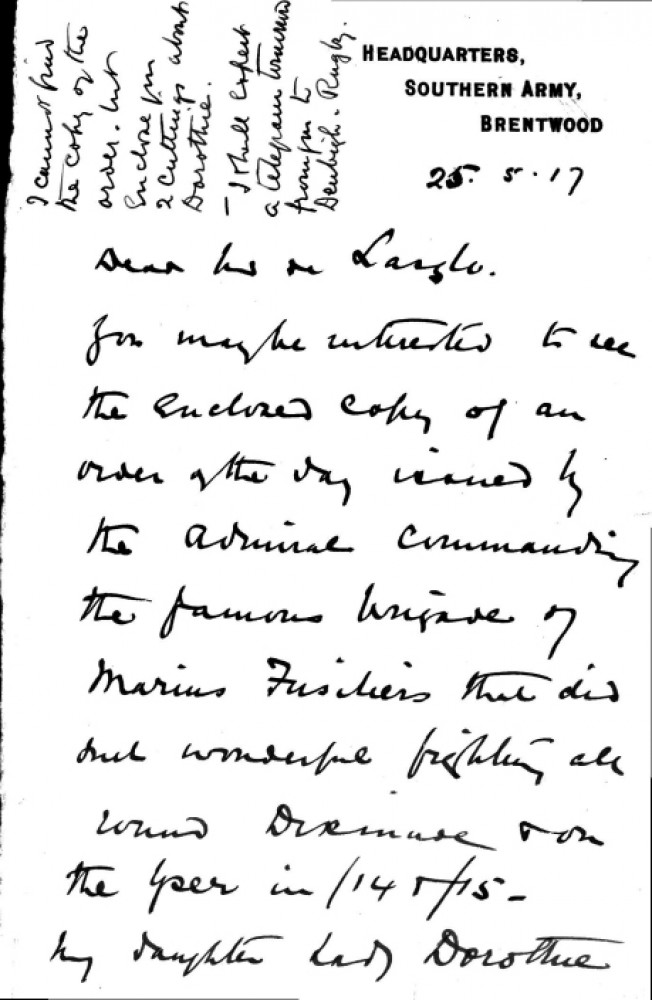 HEADQUARTERS,
SOUTHERN ARMY,
BRENTWOOD
25. 5. 17
I cannot find
the copy of the
order. but
Enclose you
2 Cuttings about
Dorothie.
- I shall expect
a telegram tomorrow
from you to
Denbigh. Rugby.
Dear Mr de Laszlo.
You may be interested to see
the Enclosed Copy of an
order of the day issued by
the Admiral Commanding
the famous brigade of
Marins Fusiliers that did
such wonderful fighting all
round Dixmude & on
the Yser in /14 & /15 -
My daughter Lady Dorothie